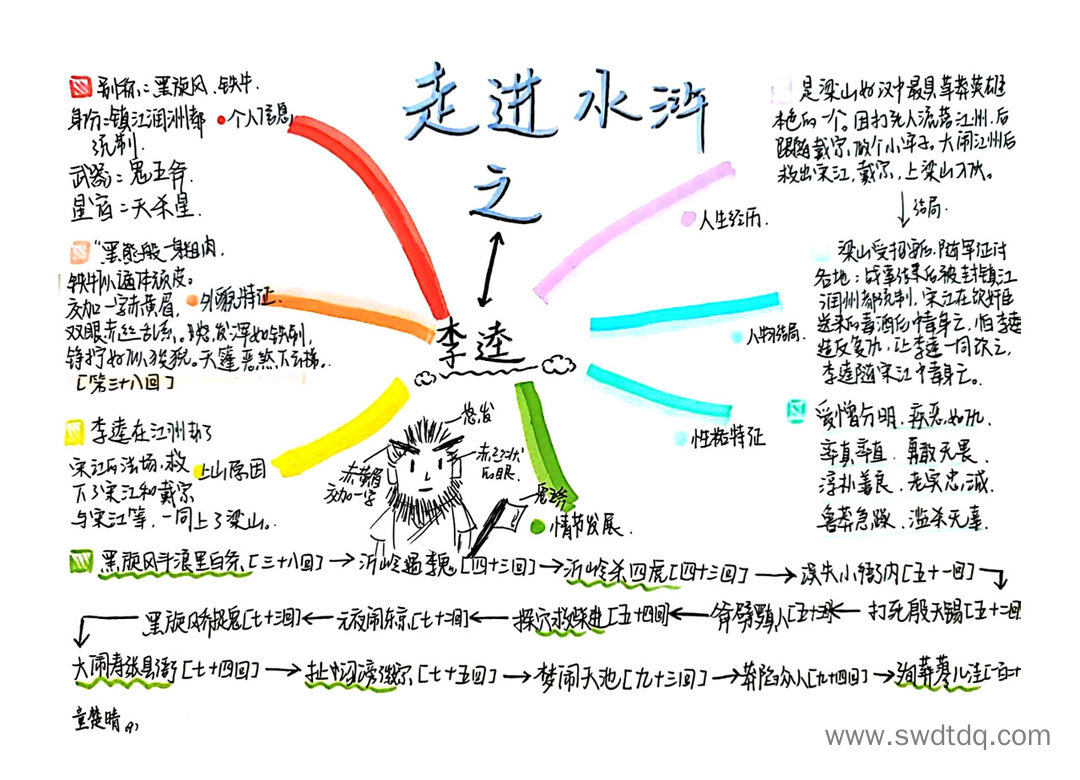 走进水浒
之
李逵
别称：黑旋风、铁牛.
身份：镇江润洲都
统制.
武器：鬼王斧
星宿：天杀星.
个人信息
"黑熊般一身粗肉,
铁牛似遍体顽皮。
交加一字赤黄眉,
双眼赤丝乱系。怒发浑如铁刷,
狰狞好似狻猊。天蓬恶煞下云梯。
[第三十八回]
外貌特征.
李逵在江州劫了
宋江后法场,救
下了宋江和戴宗
与宋江等,一同上了梁山。
上山原因
是梁山好汉中最具草莽英雄
本色的一个。因打死人流落江州.后
跟随戴宗,做个小牢子。大闹江州后
救出宋江,戴宗,上梁山入伙。
结局.
人生经历.
梁山受招安后,随军征讨
各地:战事结束后被封镇江
润州都统制,宋江在饮奸臣
送来的毒酒后中毒身亡,怕李逵
造反复仇,让李逵一同饮之,
李逵随宋江中毒身亡。
人物结局.
爱憎分明、疾恶如仇
率真率直、勇敢无畏.
淳朴善良、老实忠诚
鲁莽急躁、滥杀无辜
性格特征
怒发
赤黄眉
交加一字
的眼.
情节发展.
黑旋风斗浪里白条[三十八回]→沂岭遇李鬼[四十三回]→沂岭杀四虎[四十三回]→误失小衙内[五十一回]
黑旋风乔捉鬼[七十三回]←元夜闹东京[七十二回]←探穴救柴进[五十四回]←斧劈罗真人[五十三回]←打死殷天锡[五十二回
大闹寿张县衙[七十四回]→扯诏谤徽宗[七十五回]→梦闹天池[九十三回]→莽陷众人[九十四回]→殉葬蓼儿洼[一百二十
童楚晴
www.swdtdq.com